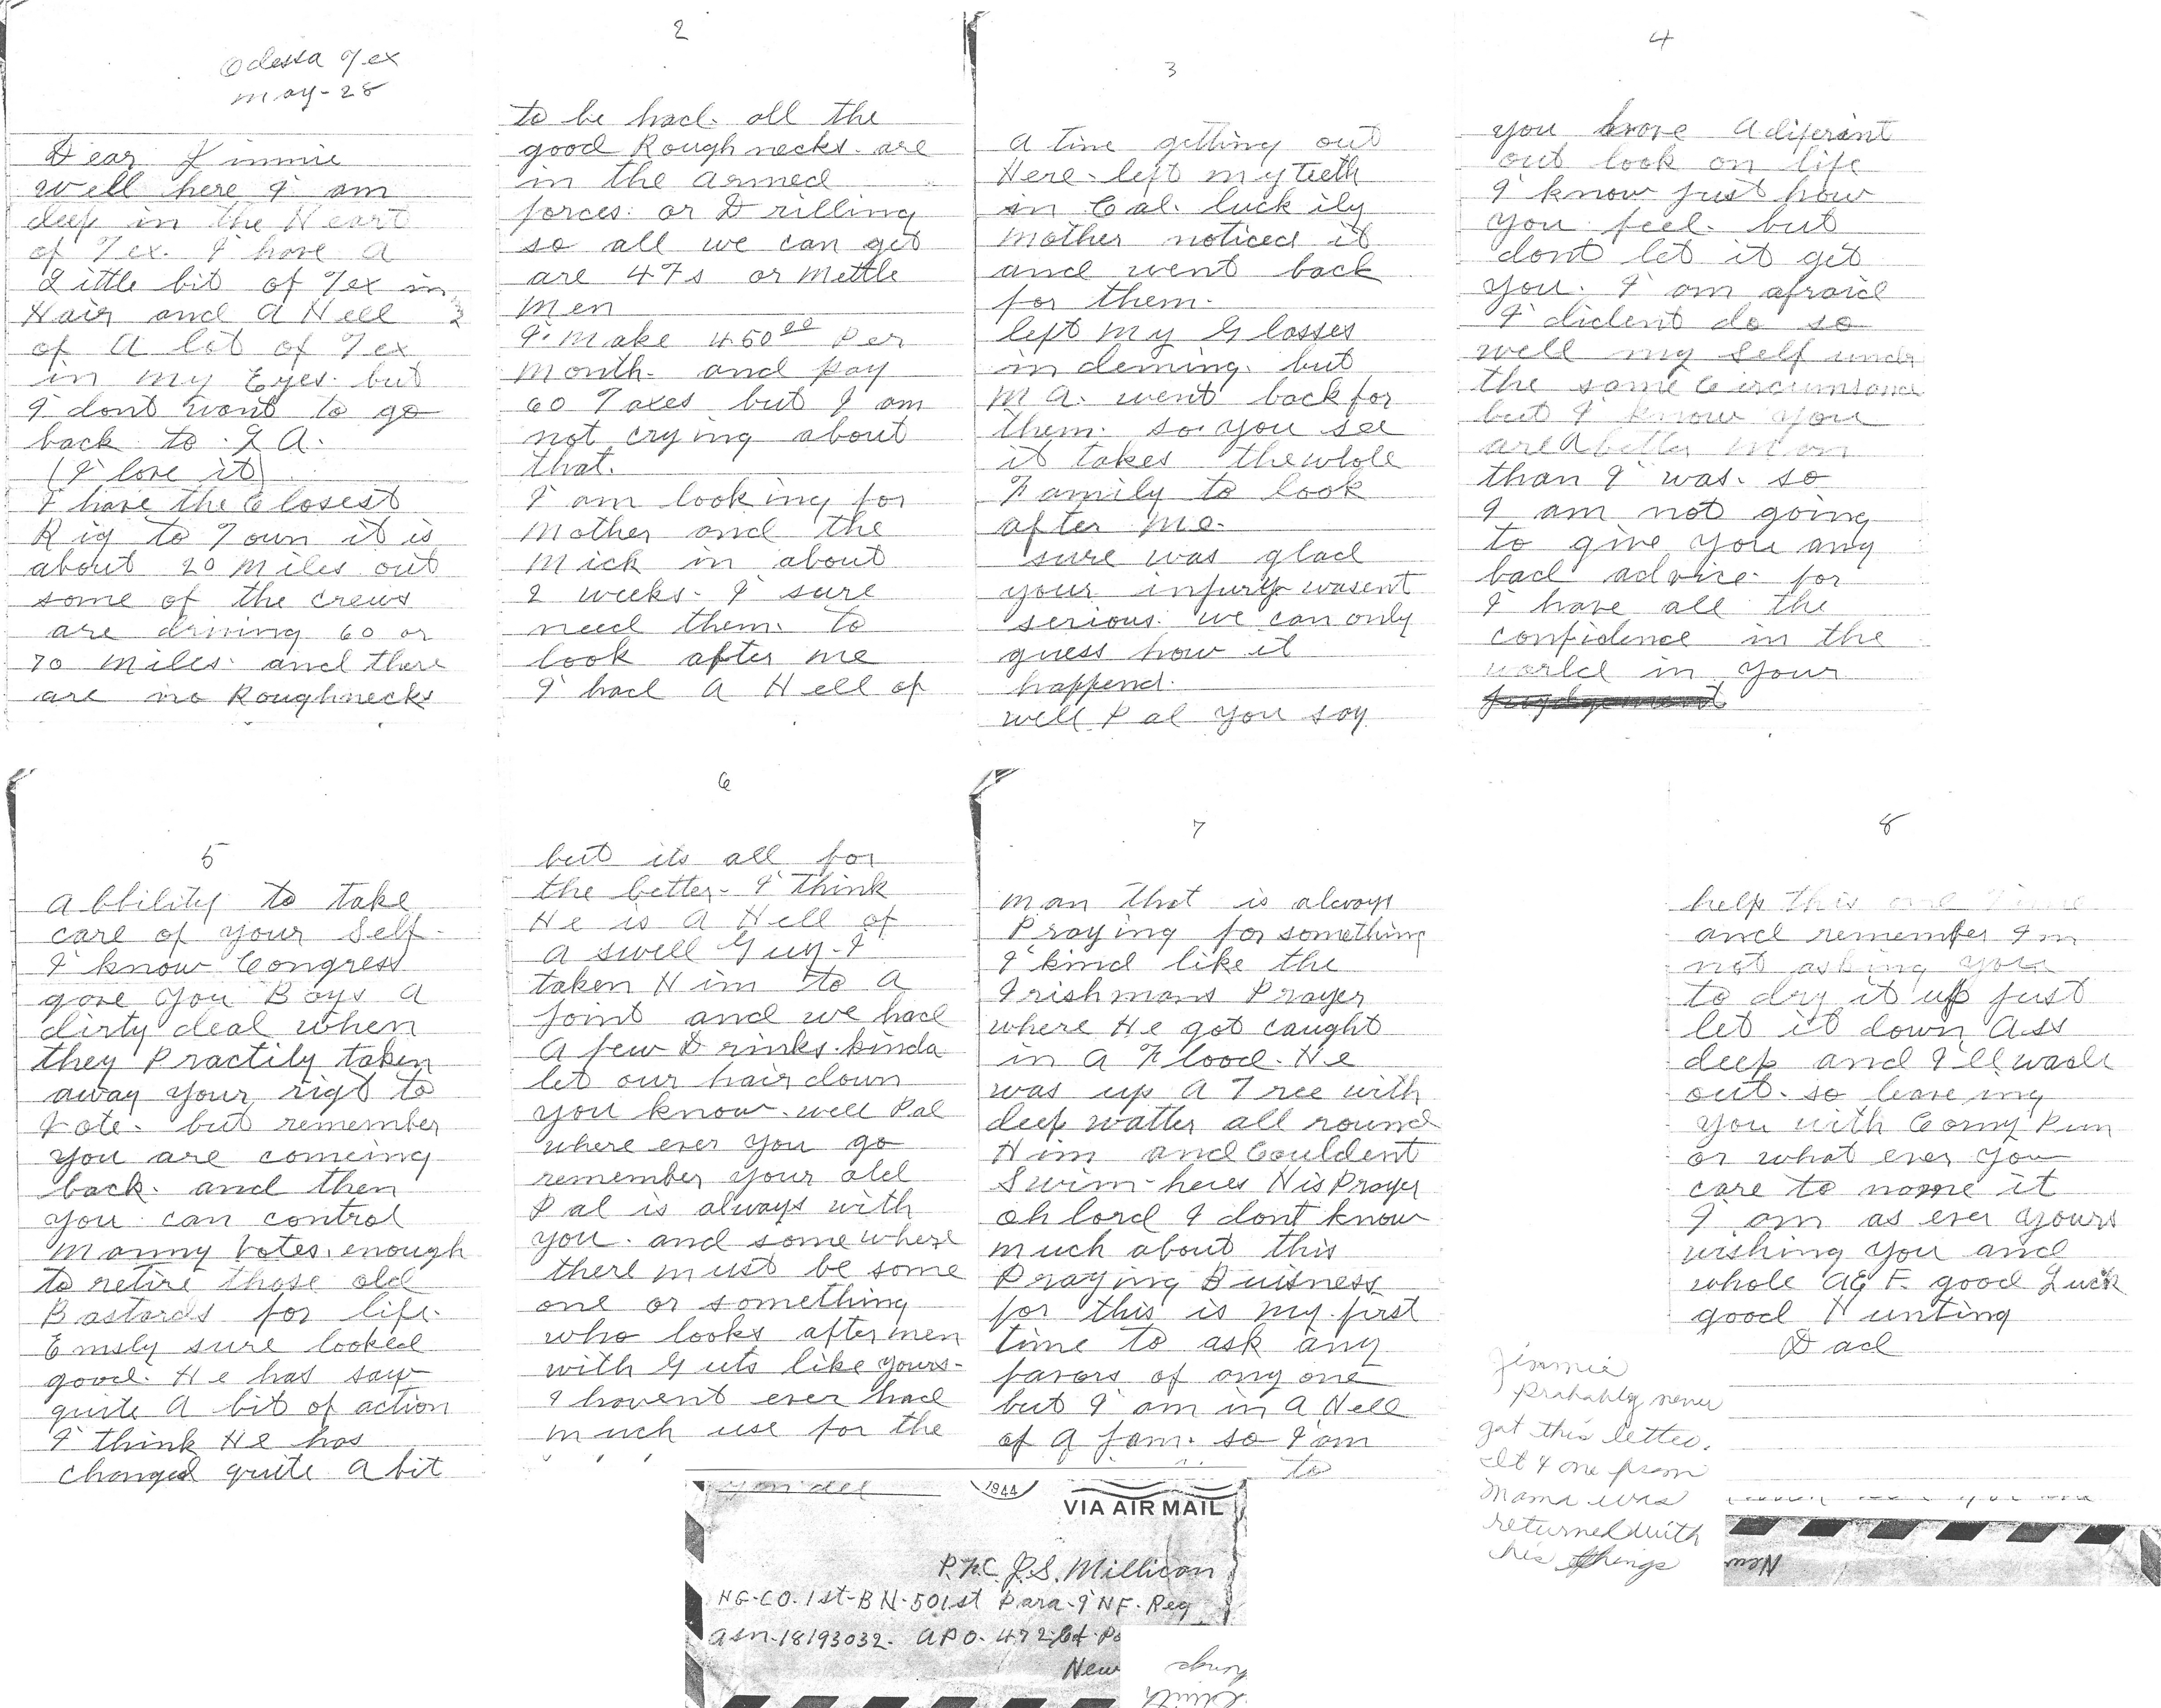 Odessa Tex
may-28
Dear Jimmie
well here I am
deep in the Heart
of Tex. I have a
Little bit of Tex in
Hair and a Hell
of a lot of Tex
in my Eyes. but
I dont want to go
back to L A.
(I love it)
I have the Closest
Rig to Town it is
about 20 miles out
some of the crews
are driving 60 or
70 miles. and there
are no Roughnecks
2
to be had. all the
good Rough necks. are
in the armed
forces. or Drilling
so all we can get
are 4Fs or mettle
men
I. make 450 00 Per
month. and pay
60 Taxes but I am
not crying about
that.
I am looking for
mother and the
mick in about
2 weeks. I sure
need them. to
look after me
I had a Hell of
3
a time getting out
Here. left my Teeth
in Cal. luck ily
mother noticed it
and went back
for them.
left my Glasses
in deming. but
M A. went back for
them. so you see
it takes the whole
Family to look
after me.
sure was glad
your injury wasent
serious. we can only
guess how it
happend.
well Pal you say
4
you have a diferant
out look on life
I know just how
you feel. but
dont let it get
you. I am afraid
I dident do so
well my self under
the same Circumstance
but I know you
are a better man
than I was. so
I am not going
to give you any
bad advice. for
I have all the
confidence in the
world in your
5
abbility to take
care of your self.
I know Congress
gave you Boys a
dirty deal when
they Practily taken
away your rigt to
Vote. but remember
you are comeing
back. and then
you can control
manny Votes. enough
to retire those old
Bastards for life.
Emsly sure looked
good. He has saw
quite a bit of action
I think He has
changed quite a bit
6
but its all for
the better. I think
He is a Hell of
a swell Guy. I
taken Him to a
joint and we had
a few Drinks. kinda
let our hair down
you know. well Pal
where ever you go
remember your old
Pal is always with
you. and some where
there must be some
one or something
who looks after men
with Guts like yours.
I havent ever had
much use for the
7
man that is always
Praying for something
I kind like the
Irishmans Prayer
where He got caught
in a Flood. He
was up a Tree with
deep watter all round
Him and Couldent
Swim. heres His Prayer
oh lord I dont know
much about this
Praying Buisness
for this is my first
time to ask any
favors of any one
but I am in a Hell
of a jam. so I am
to
8
help this one Time
and remember Im
not asking you
to dry it up just
let it down Ass
deep and I'll wade
out. so leave ing
you with Corny Pun
or what ever you
care to name it
I am as ever yours
wishing you and
whole AEF. good Luck
good Hunting
Dad
Jimmie
probably never
got this letter.
It & one from
Mama was
returned with
his things
1944
VIA AIR MAIL
P.F.C. J.S. Millican
HG-CO. 1st-BN-501st Para-INF-Reg
asn-18193032. APO-472
New
New